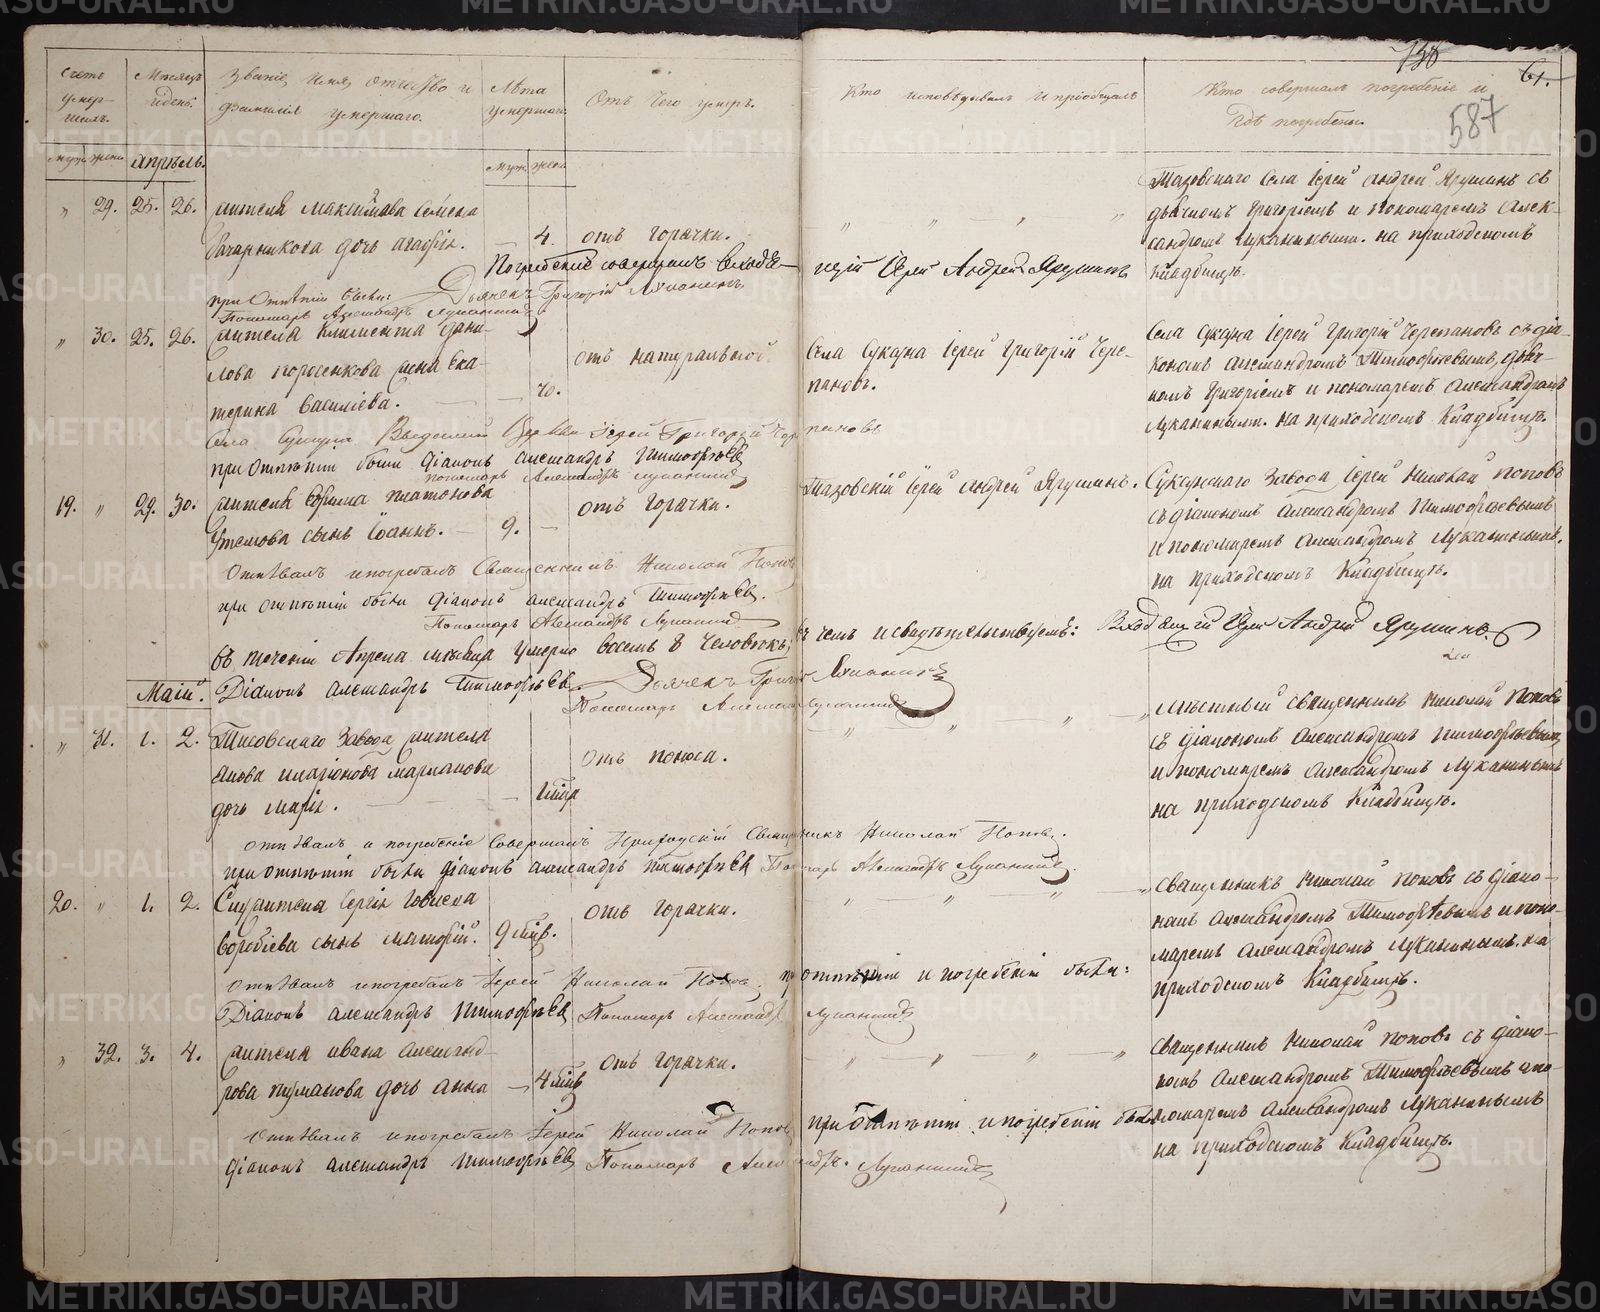 738
61.
587
Счетъ умер-шихъ.
Мѣсяцъ и день.
Званіе, имя, отчество и фамилія умершаго.
Лѣта умершаго.
Отъ чего умеръ.
Кто исповѣдывалъ и пріобщалъ
Кто совершалъ погребеніе и гдѣ погребены.
Муж. жен.
Апрѣль.
муж. жен.
29. 25. 26.
жителя Максимова Семена
дочь Агафія.
4.
отъ горячки.
Тазовскаго села Іерей Андрей Ярушинъ съ
дьячкомъ Григоріемъ и пономаремъ Алек-
сандромъ Луканиными. на приходскомъ
кладбищѣ.
Погребеніе совершалъ
Іерей Андрей Ярушинъ
при отпѣтіи были: Дьячекъ Григорій Луканинъ
Пономарь Александръ Луканинъ
30. 25. 26.
жителя Климента Дани-
лова Поросенкова жена Ека-
терина Васильева.
70.
отъ натуральной.
Села Суксуна Іерей Григорій Чере-
пановъ.
Села Суксуна Іерей Григорій Черепановъ съ діа-
кономъ Александромъ Тимофѣевымъ, дьяч-
комъ Григоріемъ и пономаремъ Александромъ
Луканиными. на приходскомъ кладбищѣ.
Села Суксуна Введенской Церкви Іерей Григорій Черепановъ
при отпѣтіи были діаконъ Александръ Тимофѣевъ
пономарь Александръ Луканинъ
19. 29. 30.
жителя Ефима Платонова
Утемова сынъ Іоаннъ.
9.
отъ горячки.
Тазовскій Іерей Андрей Ярушинъ.
Суксунскаго Завода Іерей Николай Поповъ
съ діакономъ Александромъ Тимофѣевымъ
и пономаремъ Александромъ Луканинымъ.
на приходскомъ кладбищѣ.
Отпѣвалъ и погребалъ Священникъ Николай Поповъ
при отпѣтіи были діаконъ Александръ Тимофѣевъ.
Пономарь Александръ Луканинъ
Въ теченіи Апрѣля мѣсяца умерло восемь 8 человѣкъ; въ чемъ и свидѣтельствуемъ:
Іерей Андрей Ярушинъ.
Маій.
Діаконъ Александръ Тимофѣевъ. Дьячекъ Григорій Луканинъ
Пономарь Александръ Луканинъ
31. 1. 2.
Тисовскаго Завода жителя
дочь Марія.
отъ поноса.
Мѣстный священникъ Николай Поповъ
съ діакономъ Александромъ Тимофѣевымъ
и пономаремъ Александромъ Луканинымъ
на приходскомъ кладбищѣ.
отпѣвалъ и погребеніе совершалъ Приходскій Священникъ Николай Поповъ.
при отпѣтіи были діаконъ Александръ Тимофѣевъ Пономарь Александръ Луканинъ
20. 1. 2.
Воробьева сынъ
отъ горячки.
Священникъ Николай Поповъ съ діако-
номъ Александромъ Тимофѣевымъ и поно-
маремъ Александромъ Луканинымъ. на
приходскомъ кладбищѣ.
Отпѣвалъ и погребалъ Іерей Николай Поповъ. при отпѣтіи и погребеніи были:
Діаконъ Александръ Тимофѣевъ Пономарь Александръ Луканинъ
32. 3. 4.
жителя Ивана Александ-
рова дочь Анна
отъ горячки.
Священникъ Николай Поповъ съ діако-
номъ Александромъ Тимофѣевымъ и по-
номаремъ Александромъ Луканинымъ
на приходскомъ кладбищѣ.
Отпѣвалъ и погребалъ Іерей Николай Поповъ при отпѣтіи и погребеніи были
діаконъ Александръ Тимофѣевъ Пономарь Александръ Луканинъ
METRIKI.GASO-URAL.RU